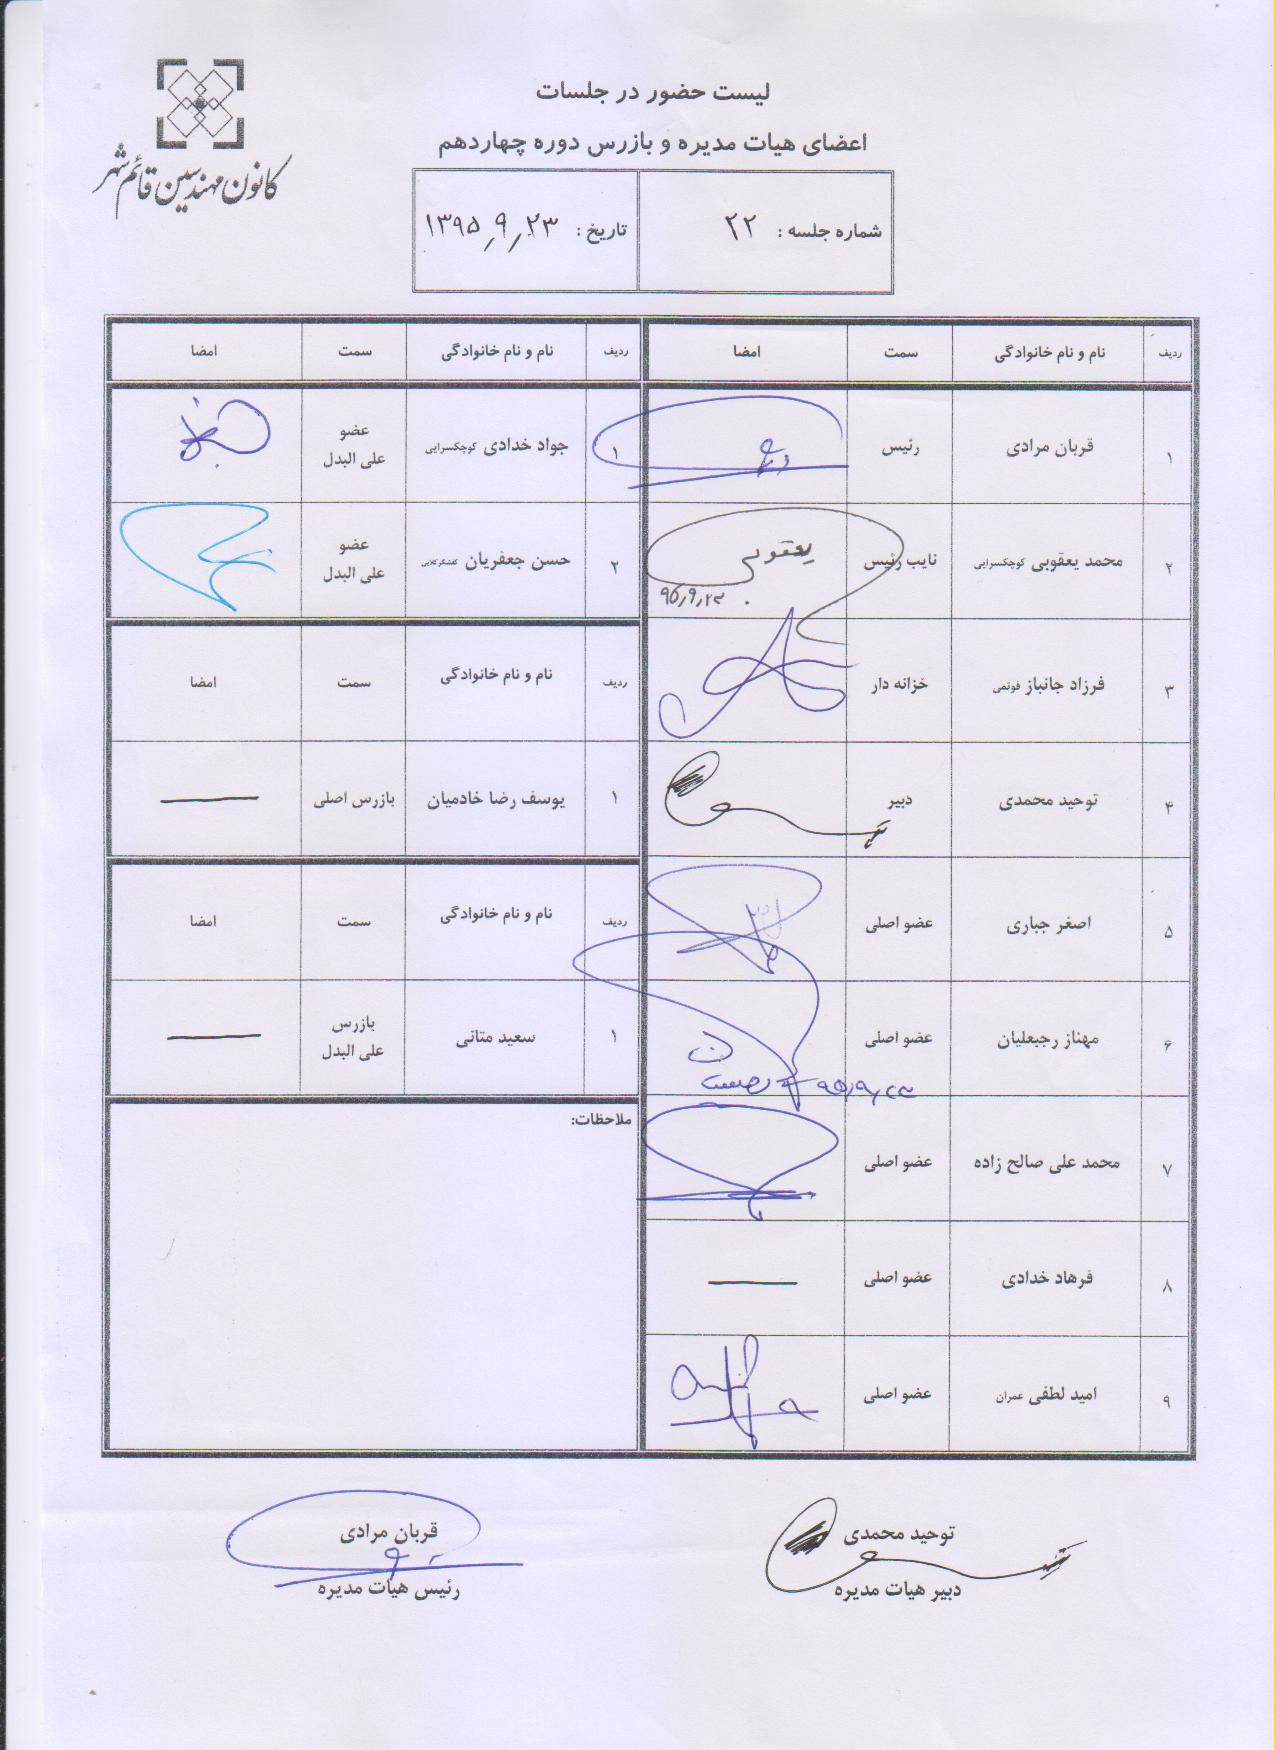 کانون مهندسین قائم شهر
لیست حضور در جلسات
اعضای هیات مدیره و بازرس دوره چهاردهم
شماره جلسه : ۲۲
تاریخ : ۱۳۹۵/۹/۲۳
ردیف نام و نام خانوادگی سمت امضا
۱ قربان مرادی رئیس
۲ محمد یعقوبی کوچکسرایی نایب رئیس یعقوبی ۹۵/۹/۲۳
۳ فرزاد جانباز فوتمی خزانه دار
۴ توحید محمدی دبیر
۵ اصغر جباری عضو اصلی
۶ مهناز رجبعلیان عضو اصلی ۹۵/۹/۲۳
۷ محمد علی صالح زاده عضو اصلی
۸ فرهاد خدادی عضو اصلی
۹ امید لطفی عمران عضو اصلی
ردیف نام و نام خانوادگی سمت امضا
۱ جواد خدادی کوچکسرایی عضو
علی البدل
۲ حسن جعفریان کفشگرکلایی عضو
علی البدل
ردیف نام و نام خانوادگی سمت امضا
۱ یوسف رضا خادمیان بازرس اصلی
ردیف نام و نام خانوادگی سمت امضا
۱ سعید متانی بازرس
علی البدل
ملاحظات:
توحید محمدی
دبیر هیات مدیره
قربان مرادی
رئیس هیات مدیره